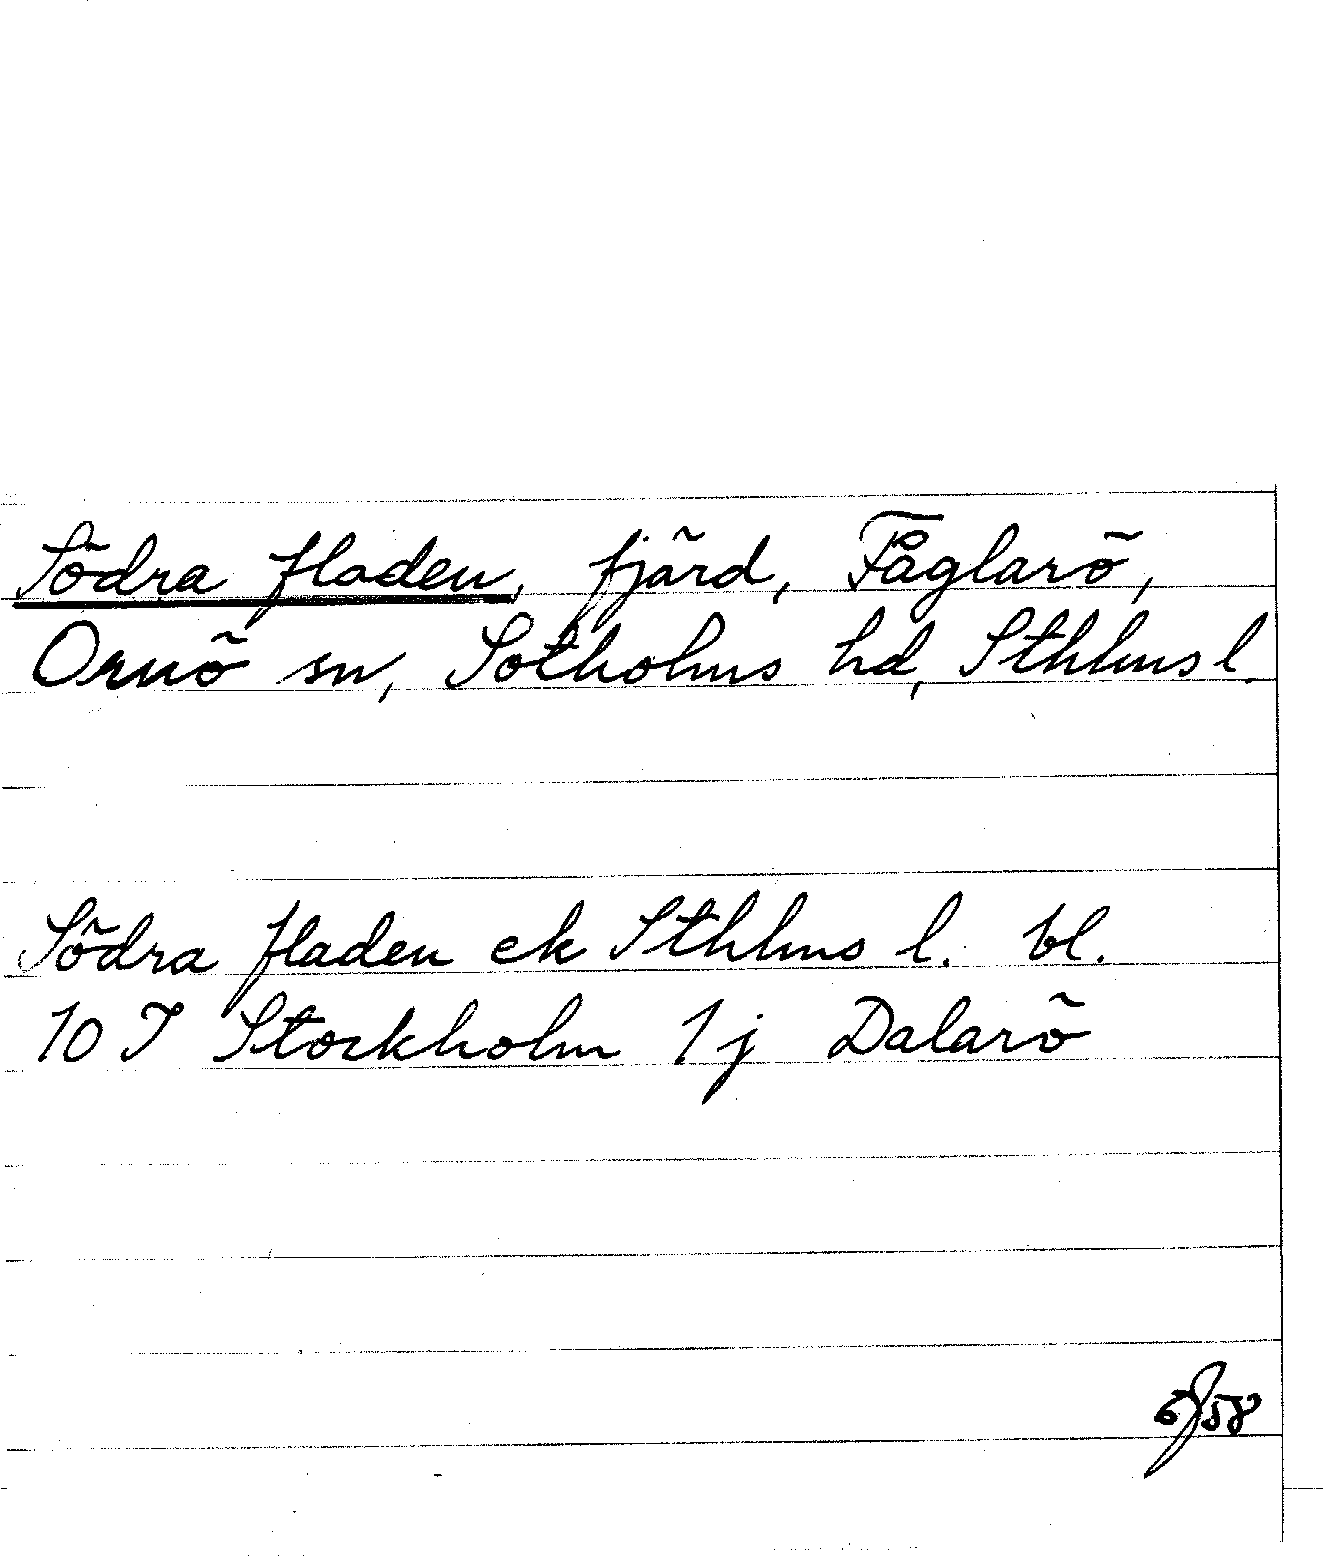 Södra fladen, fjärd, Fåglarö,
Ornö sn, Sotholms hd, Sthlms l.
Södra fladen ek Sthlms l. bl.
10 I Stockholm 1j Dalarö